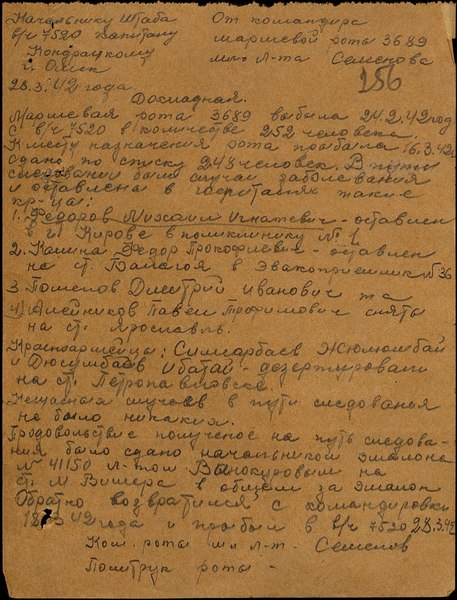 Начальнику Штаба
в/ч 7520 капитану
Кондрацкому
г. Омск
28.3.42 года
От командира
маршевой роты 3689
мл. л-та Семенова
156
Докладная.
Маршевая рота 3689 выбыла 24.2.42 год
с в/ч 7520 в количестве 252 человека.
К месту назначения рота прибыла 16.3.42г
сдано по списку 248 человек. В пути
следования были случаи заболевания
и оставлены в госпиталях такие
кр-цы:
1. Федоров Михаил Игнатевич - оставлен
в г. Кирове в поликлинику № 1
2. Калина Федор Прокофиевич - оставлен
на ст. Балагоя в Эвакоприемник № 36
3 Помелов Дмитрий Иванович та
4) Алейников Павел Трофимович сняты
на ст. Ярославль.
Красноармейцы: Симарбаев Жюлюмбай
и Дюсумбаев Ибатай - дезертировали
на ст. Петропавловске.
Нещасных случаев в пути следования
не было никаких.
Продовольствие полученое на путь следова-
ния было сдано начальником эшалона
№ 41150 л-том Винокуровым на
ст. М Вишера в общем за эшалон
Обратно возвратился с командировки
18.3.42 года и прибыл в в/ч 7520 28.3.42
Ком. роты мл. л-т. Семенов
Политрук роты -